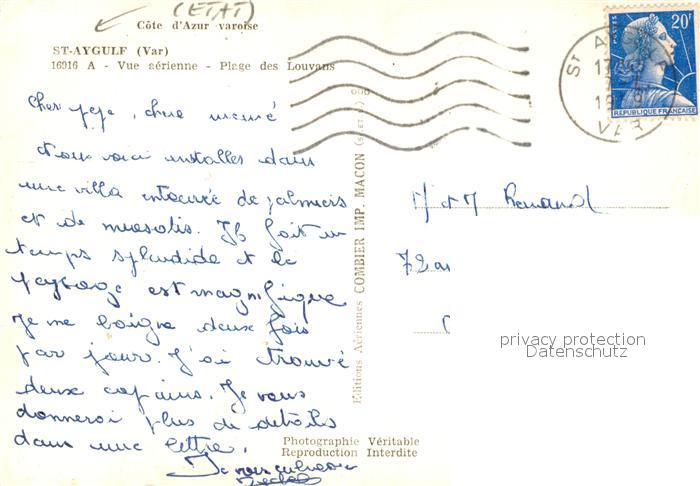 (ETAT)
Côte d'Azur varoise
ST-AYGULF (Var)
16916 A - Vue aérienne - Plage des Louvans
20F
POSTES
REPUBLIQUE FRANÇAISE
ST A
VAR
Cher pépé, chère mémé
Nous voici installés dans
une villa entourée de palmiers
et de mimosas. Il fait un
temps splendide et le
paysage est magnifique
Je me baigne deux fois
par jour. J'ai trouvé
deux copains. Je vous
donnerai plus de détails
dans une lettre.
Je vous embrasse
Editions Aériennes COMBIER IMP. MACON
M et M Renaud
72
privacy protection
Datenschutz
Photographie Véritable
Reproduction Interdite